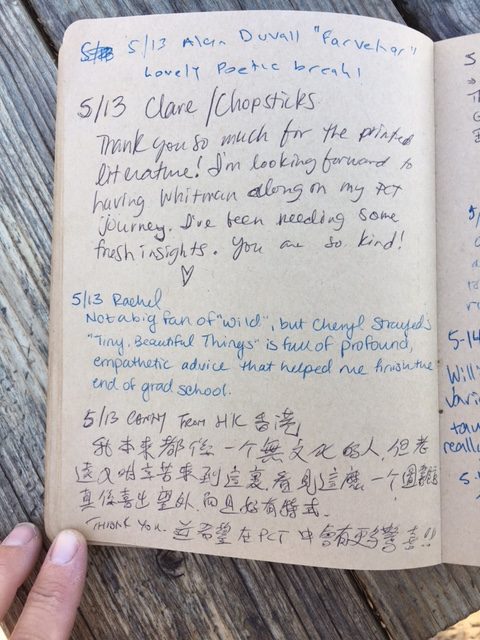 5/13 Alan Duvall "Farvehar"
Lovely Poetic break!
5/13 Clare/Chopsticks
Thank you so much for the printed
literature! I'm looking forward to
having Whitman along on my PCT
journey. I've been needing some
fresh insights. You are so kind!
♡
5/13 Rachel
Not a big fan of "Wild", but Cheryl Strayed's
"Tiny, Beautiful Things" is full of profound,
empathetic advice that helped me finish the
end of grad school.
5/13 from HK 香港
我本來都係一個無文化的人,但老
遠又咁辛苦來到這裏看見這麼一個圖
真係喜出望外而且好有特式.
Thank you. 並希望在PCT中會有更多驚喜!!
5
5/
5-14
Willi
tow
really
5